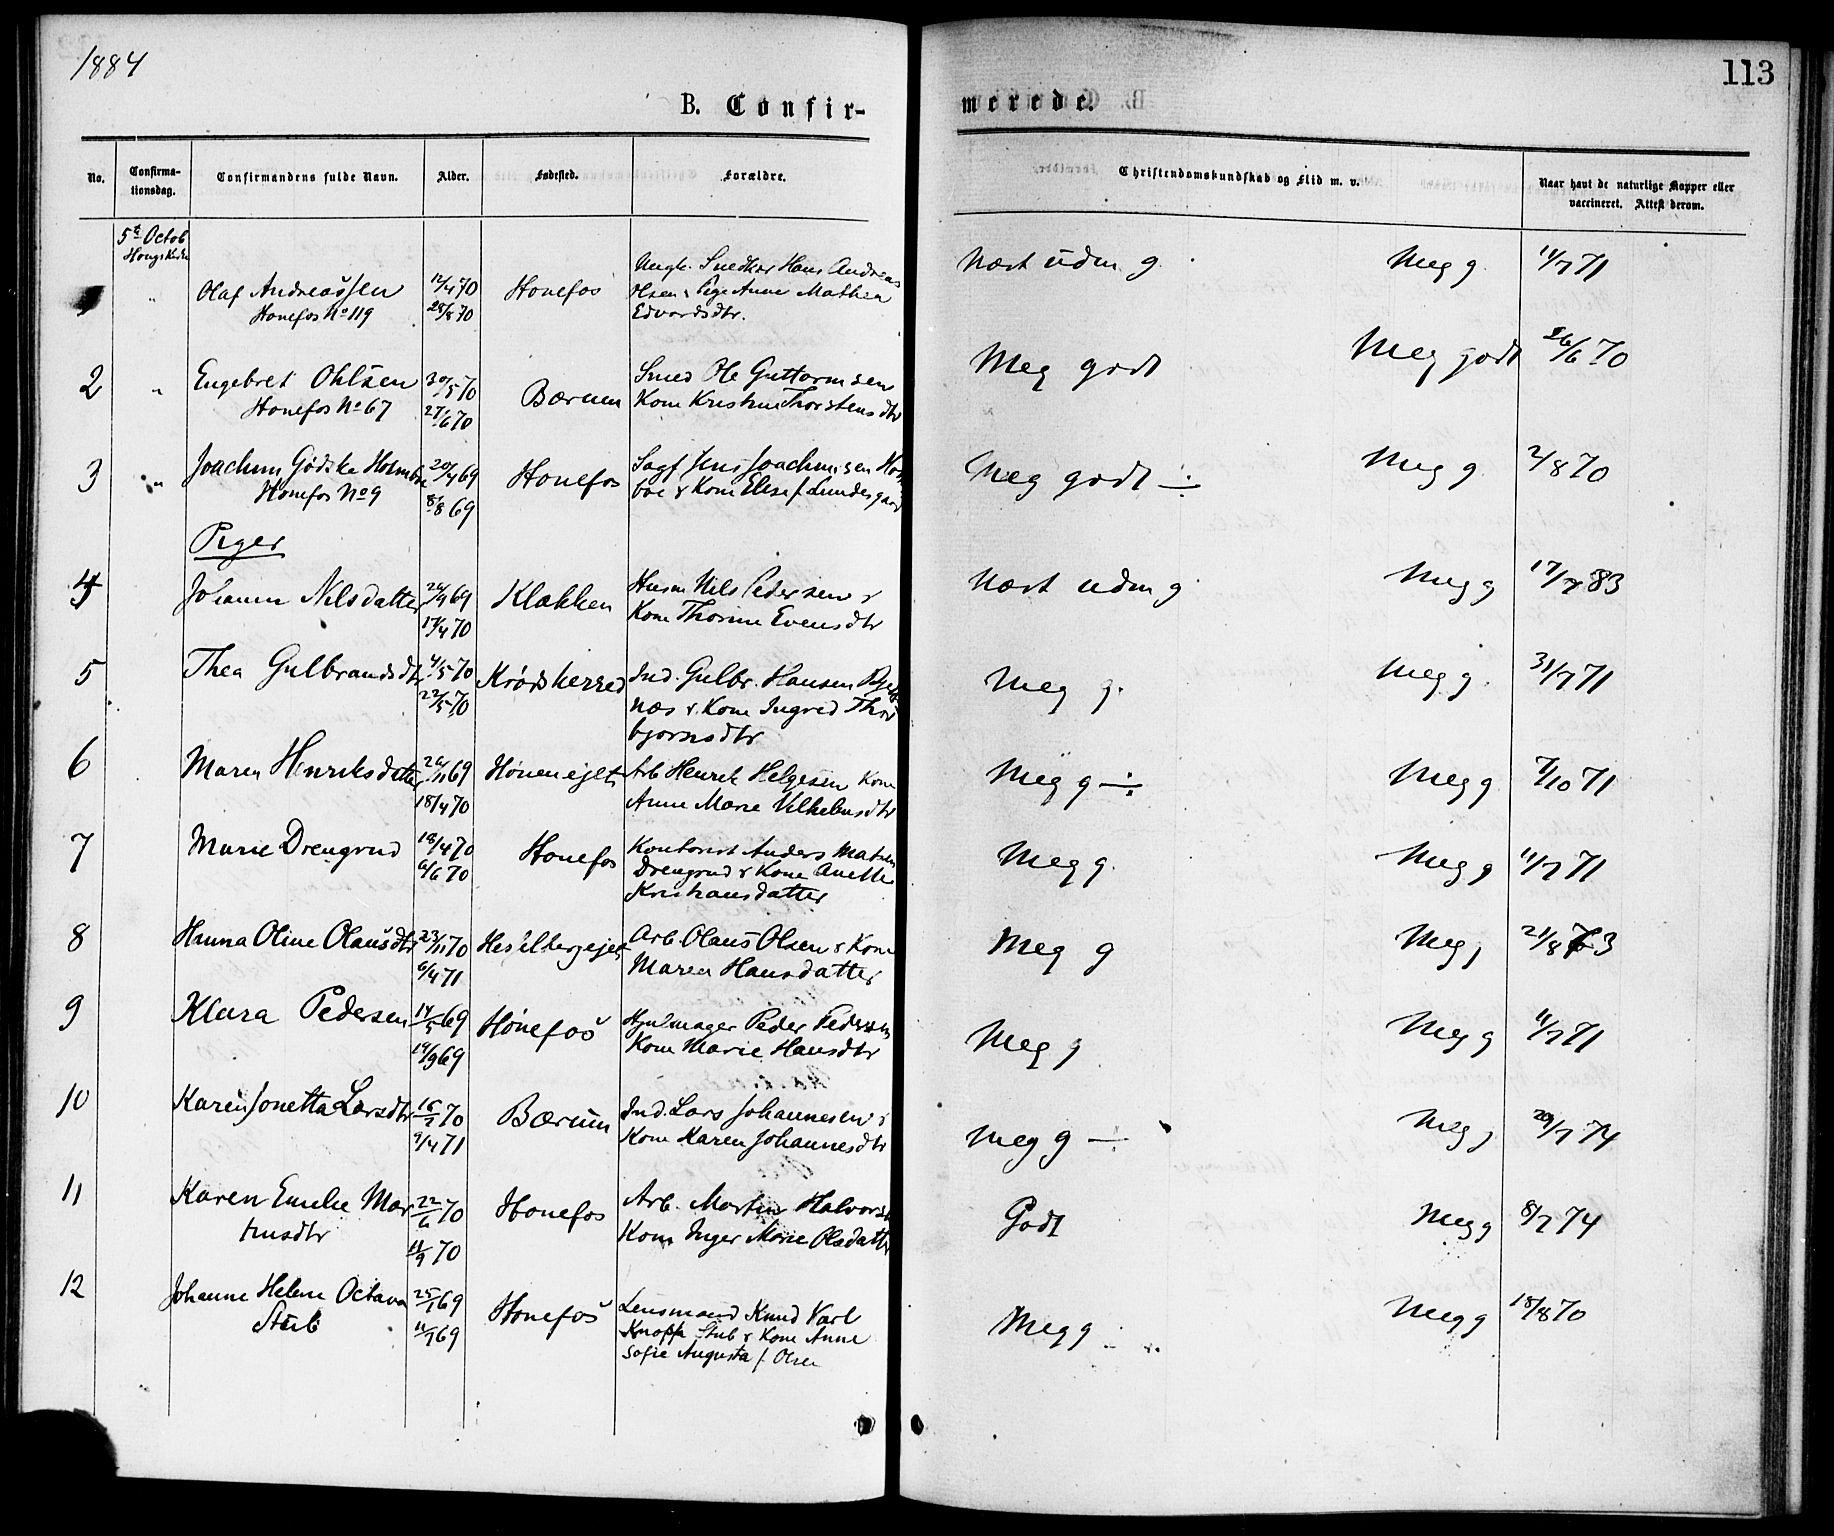 1884
113
B. Confir-
merede.
No.
Confirma-
tionsdag.
Confirmandens fulde Navn.
Alder.
Fødested.
Forældre.
Christendomskundskab og Flid m. v.
Naar havt de naturlige Kopper eller
vaccineret. Attest derom.
5te Octob
Olaf Andreassen
Honefos No 119
12/4 70
28/8 70
Honefos
Ungk. Snedker Hans Andreas
Olsen & Pige Anne Mathea
Edvardsdtr.
Næst udm g.
Meg g.
11/7 71
2
"
Engebret Ohlsen
Honefos No 67
30/5 70
27/6 70
Bærum
Smed Ole Guttormsen
Kone Kristine Thorstensdtr
Meg godt
Meg godt
26/6 70
3
"
Joachim Gødske Holmboe
Honefos No 9
20/4 69
8/8 69
Honefos
Sagf Jens Joachimsen Holm
boe & Kone Elise f. Lundegaard
Meg godt ÷
Meg g.
2/8 70
Piger
4
Johanne Nilsdatter
26/9 69
17/4 70
Klækken
Husm Nils Pedersen &
Kone Thorine Evensdtr
Næst udm g
Meg g
17/7 83
5
Thea Gulbrandsdtr
4/5 70
22/5 70
Krødsherred
Ind. Gulbr. Hansen
næs & Kone Ingred Thor
bjørnsdtr
Meg g.
Meg g.
31/7 71
6
Maren Henriksdatter
26/11 69
18/4 70
Hønenejet
Arb Henrik Helgesen Kone
Anne Marie Vilhelmsdtr
Meg g ÷
Meg g
7/10 71
7
Marie Drengrud
18/4 70
6/6 70
Honefos
Kontorist Anders Mats
Drengrud & Kone Anette
Kristiansdatter
Meg g.
Meg g
11/7 71
8
Hanna Oline Olausdtr
23/11 70
6/4 71
Hesselbergejet
Arb Olaus Olsen & Kone
Maren Hansdatter
Meg g
Meg g
21/8 73
9
Klara Pedersen
14/5 69
19/9 69
Hønefos
Hjulmager Peder Pedersen
Kone Marie Hansdtr
Meg g
Meg g
11/7 71
10
Karen Jonetta Larsdtr
16/2 70
9/4 71
Bærum
Ind. Lars Johannesen &
Kone Karen Johannesdtr
Meg g ÷
Meg g
20/7 74
11
Karen Emelie Mar
tinsdtr
22/6 70
11/9 70
Honefos
Arb. Martin Halvors
Kone Inger Marie Olsdatter
Godt
Meg g
8/7 74
12
Johanne Helene Octava
Stub
25/1 69
11/7 69
Honefos
Lensmand Knud Karl
Knoph Stub & Kone Anne
Sofie Augusta f. Olsen
Meg g
Meg g
18/8 70